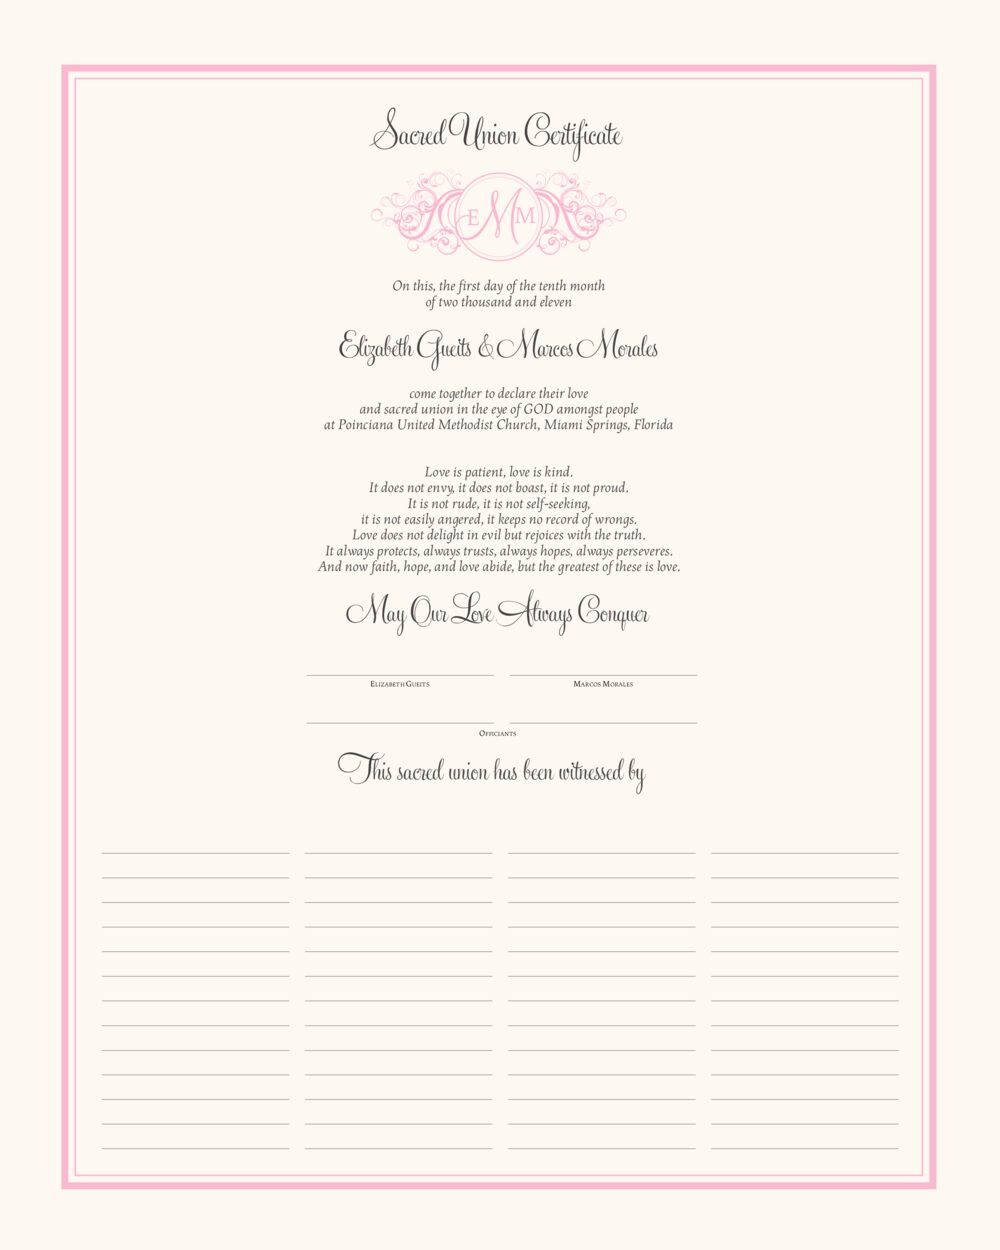 Sacred Union Certificate
E M M
On this, the first day of the tenth month
of two thousand and eleven
Elizabeth Gueits & Marcos Morales
come together to declare their love
and sacred union in the eye of GOD amongst people
at Poinciana United Methodist Church, Miami Springs, Florida
Love is patient, love is kind.
It does not envy, it does not boast, it is not proud.
It is not rude, it is not self-seeking,
it is not easily angered, it keeps no record of wrongs.
Love does not delight in evil but rejoices with the truth.
It always protects, always trusts, always hopes, always perseveres.
And now faith, hope, and love abide, but the greatest of these is love.
May Our Love Always Conquer
Elizabeth Gueits Marcos Morales
Officiants
This sacred union has been witnessed by